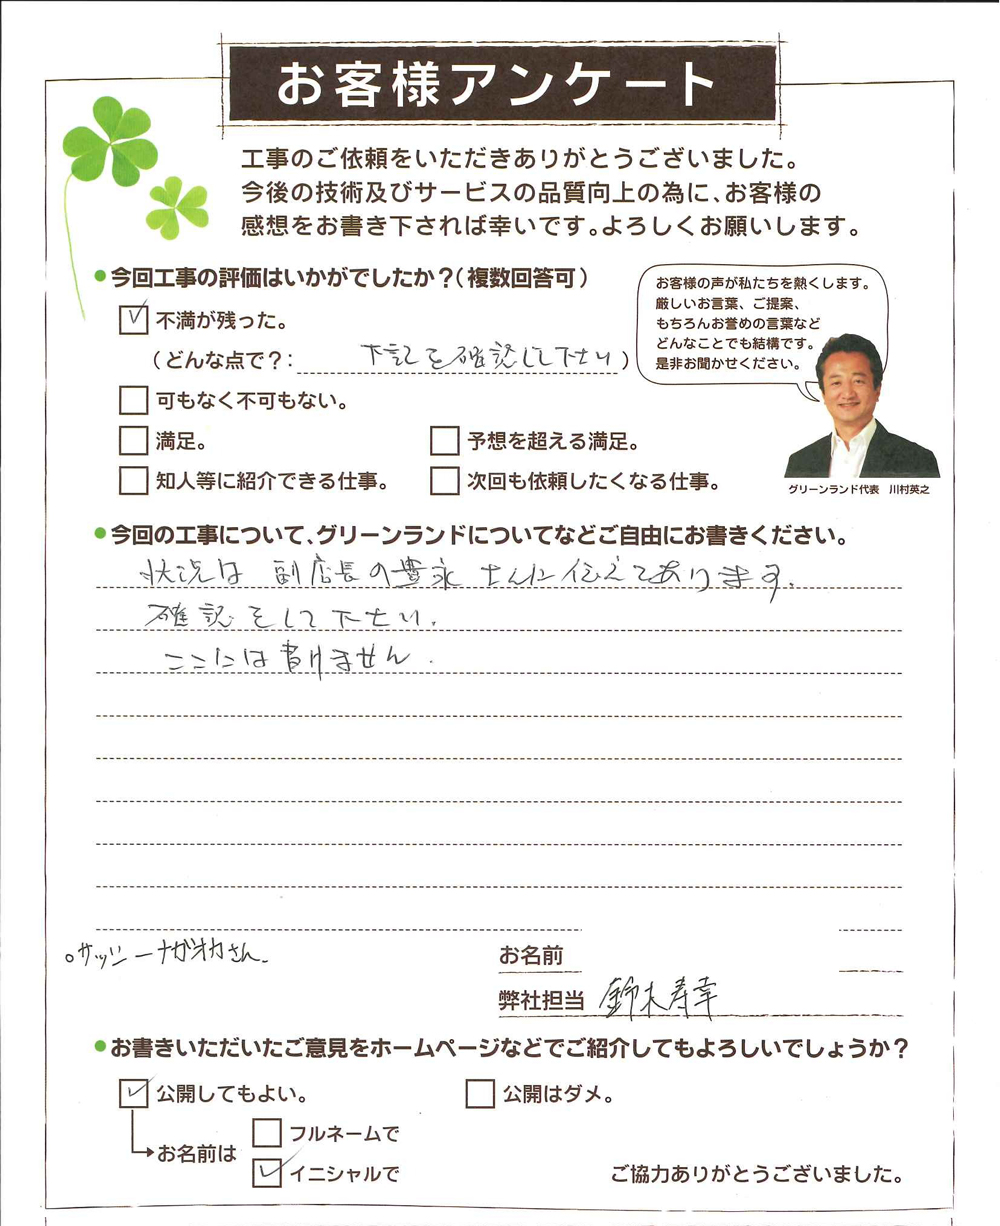 お客様アンケート
工事のご依頼をいただきありがとうございました。
今後の技術及びサービスの品質向上の為に、お客様の
感想をお書き下されば幸いです。よろしくお願いします。
●今回工事の評価はいかがでしたか?(複数回答可)
不満が残った。
(どんな点で?: 下記を確認して下さい)
可もなく不可もない。
満足。
予想を超える満足。
知人等に紹介できる仕事。
次回も依頼したくなる仕事。
お客様の声が私たちを熱くします。
厳しいお言葉、ご提案、
もちろんお誉めの言葉など
どんなことでも結構です。
是非お聞かせください。
グリーンランド代表 川村英之
●今回の工事について、グリーンランドについてなどご自由にお書きください。
状況は 副店長の豊永さんに伝えてあります.
確認をして下さい.
ここには書けません.
○サッシーナガオカさん.
お名前
弊社担当 鈴木寿幸
●お書きいただいたご意見をホームページなどでご紹介してもよろしいでしょうか?
公開してもよい。
公開はダメ。
お名前は
フルネームで
イニシャルで
ご協力ありがとうございました。